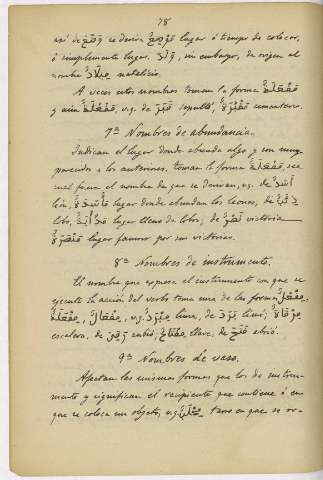 78
así de وَضَعَ se deriva مَوْضِعٌ lugar ó tiempo de colocar,
ó simplemente lugar. وَلَدَ, sin embargo, da origen al
nombre مِيلَادٌ natalicio.
A veces estos nombres toman la forma مَفْعَلَةٌ
y aun مَفْعُلَةٌ, v.g. de قَبَرَ sepultó, مَقْبُرَةٌ cementerio.
7º Nombres de abundancia.
Indican el lugar donde abunda algo, y son muy
parecidos a los anteriores. toman la forma مَفْعَلَةٌ, sea
cual fuere el nombre de que se derivan, v.g. de أَسَدٌ
león, مَأْسَدَةٌ lugar donde abundan los leones, de ذِئْبٌ
lobo, مَذْأَبَةٌ lugar lleno de lobos; de نَصْرٌ victoria
مَنْصَرَةٌ lugar famoso por sus victorias.
8º Nombres de instrumento.
El nombre que expresa el instrumento con que se
ejecuta la acción del verbo toma una de las formas مِفْعَلٌ
مِفْعَلَةٌ, مِفْعَالٌ, v.g. مِبْرَدٌ lima, de بَرَدَ limó; مِرْقَاةٌ
escalera, de رَقِيَ subió; مِفْتَاحٌ llave, de فَتَحَ abrió.
9º Nombres de vaso.
Afectan las mismas formas que los de instru-
mento y significan el recipiente que contiene ó en
que se coloca un objeto, v.g. مِحْلَبٌ tarro en que se or-